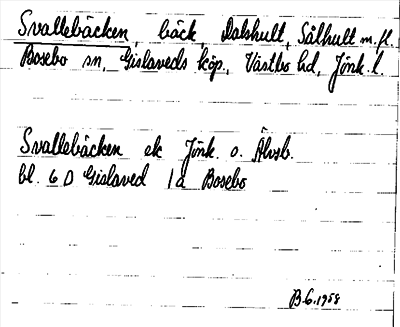 Svallebäcken, bäck, Dalshult, Sålhult m.fl.
Bosebo sn, Gislaveds köp., Västbo hd, Jönk. l.
Svallebäcken ek Jönk. o. Älvsb.
bl. 6 D Gislaved 1d Bosebo
B.G. 1958